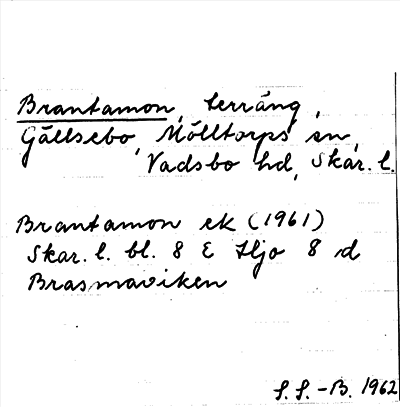 Brantamon, terräng,
Gällsebo, Mölltorps sn,
Vadsbo hd, Skar. l.
Brantamon ek (1961)
Skar. l. bl. 8 E Hjo 8 d
Brasmaviken
S. S. -B. 1962